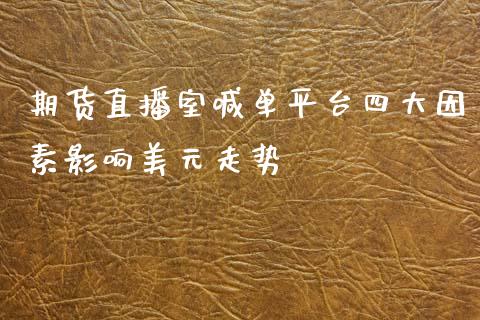 期货直播室喊单平台四大因
素影响美元走势